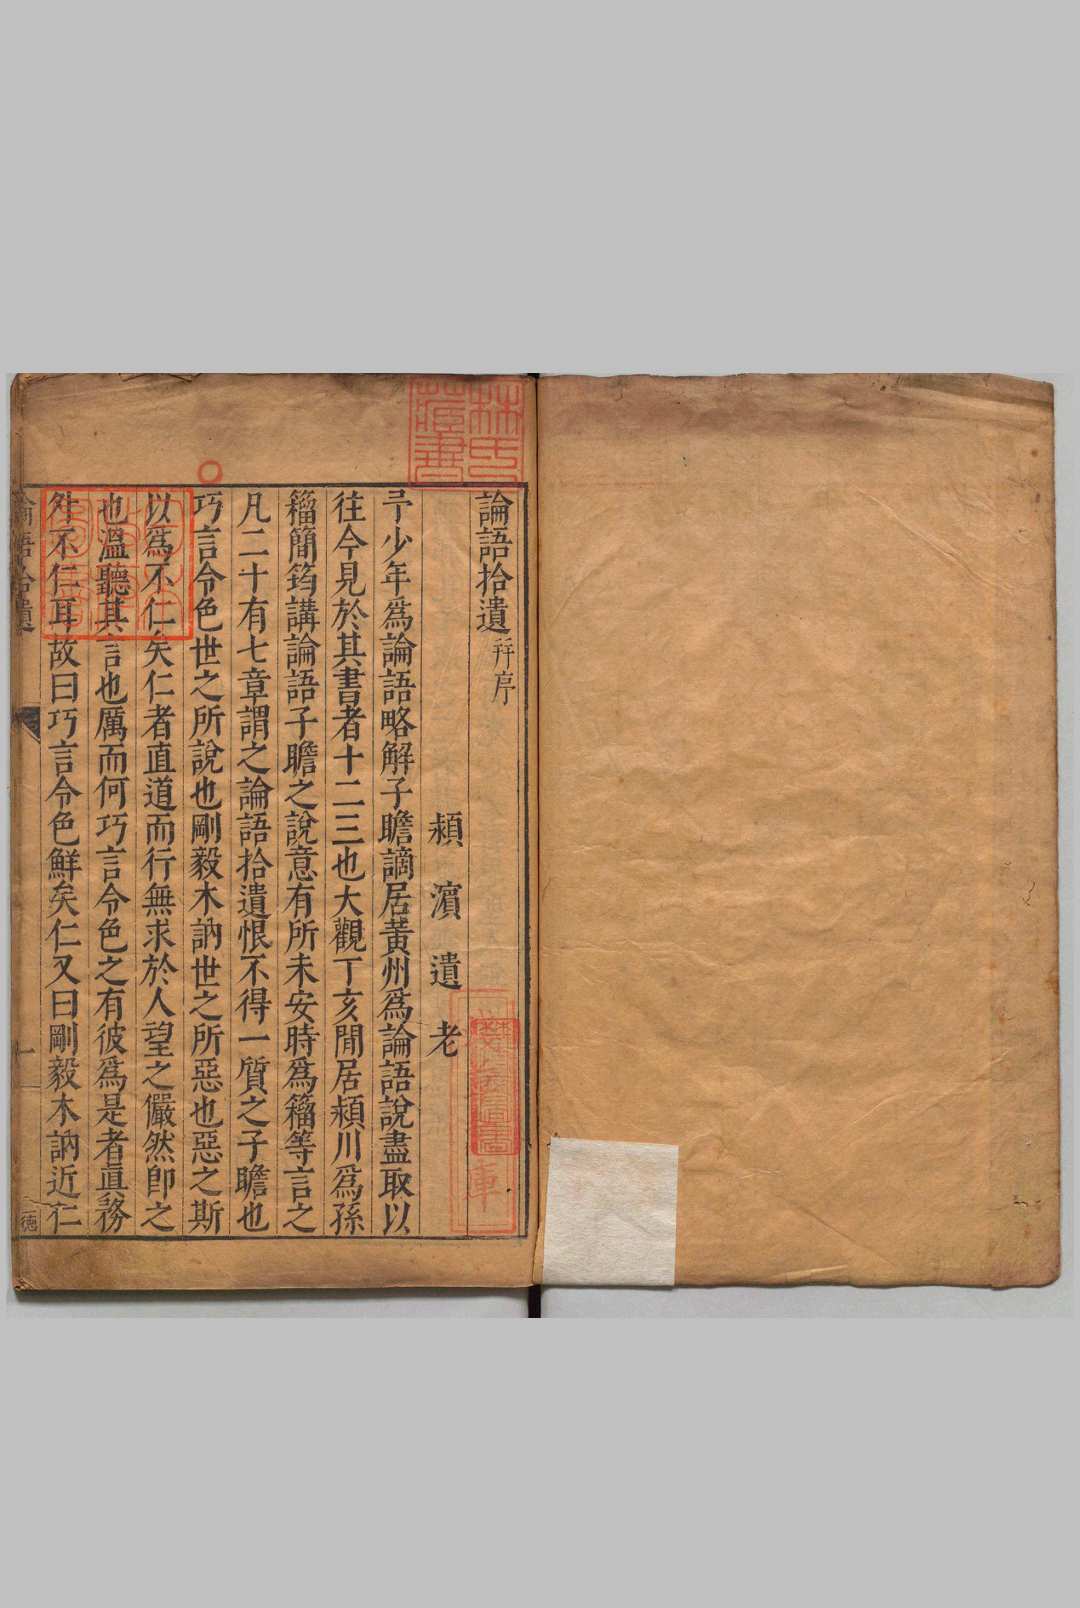 論語拾遺 幷序
潁濱遺老
予少年爲論語略解子瞻謫居黃州爲論語說盡取以
往今見於其書者十二三也大觀丁亥閒居潁川爲孫
籀簡筠講論語子瞻之說意有所未安時爲籀等言之
凡二十有七章謂之論語拾遺恨不得一質之子瞻也
巧言令色世之所說也剛毅木訥世之所惡也惡之斯
以爲不仁矣仁者直道而行無求於人望之儼然卽之
也溫聽其言也厲而何巧言令色之有彼爲是者直務
外不仁耳故曰巧言令色鮮矣仁又曰剛毅木訥近仁
論語拾遺
一
林氏藏書